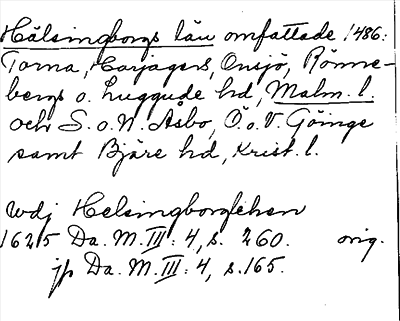 Hälsingborgs län omfattade 1486:
Torna, Harjagers, Onsjö, Rönne-
bergs o. Luggude hd, Malm. l.
och S. o. N. Åsbo, Ö. o. V. Göinge
samt Bjäre hd, Krist. l.
wdj Helsingborglehen
1625 Da. M. III: 4, s. 260. orig.
jp Da. M. III: 4, s. 165.